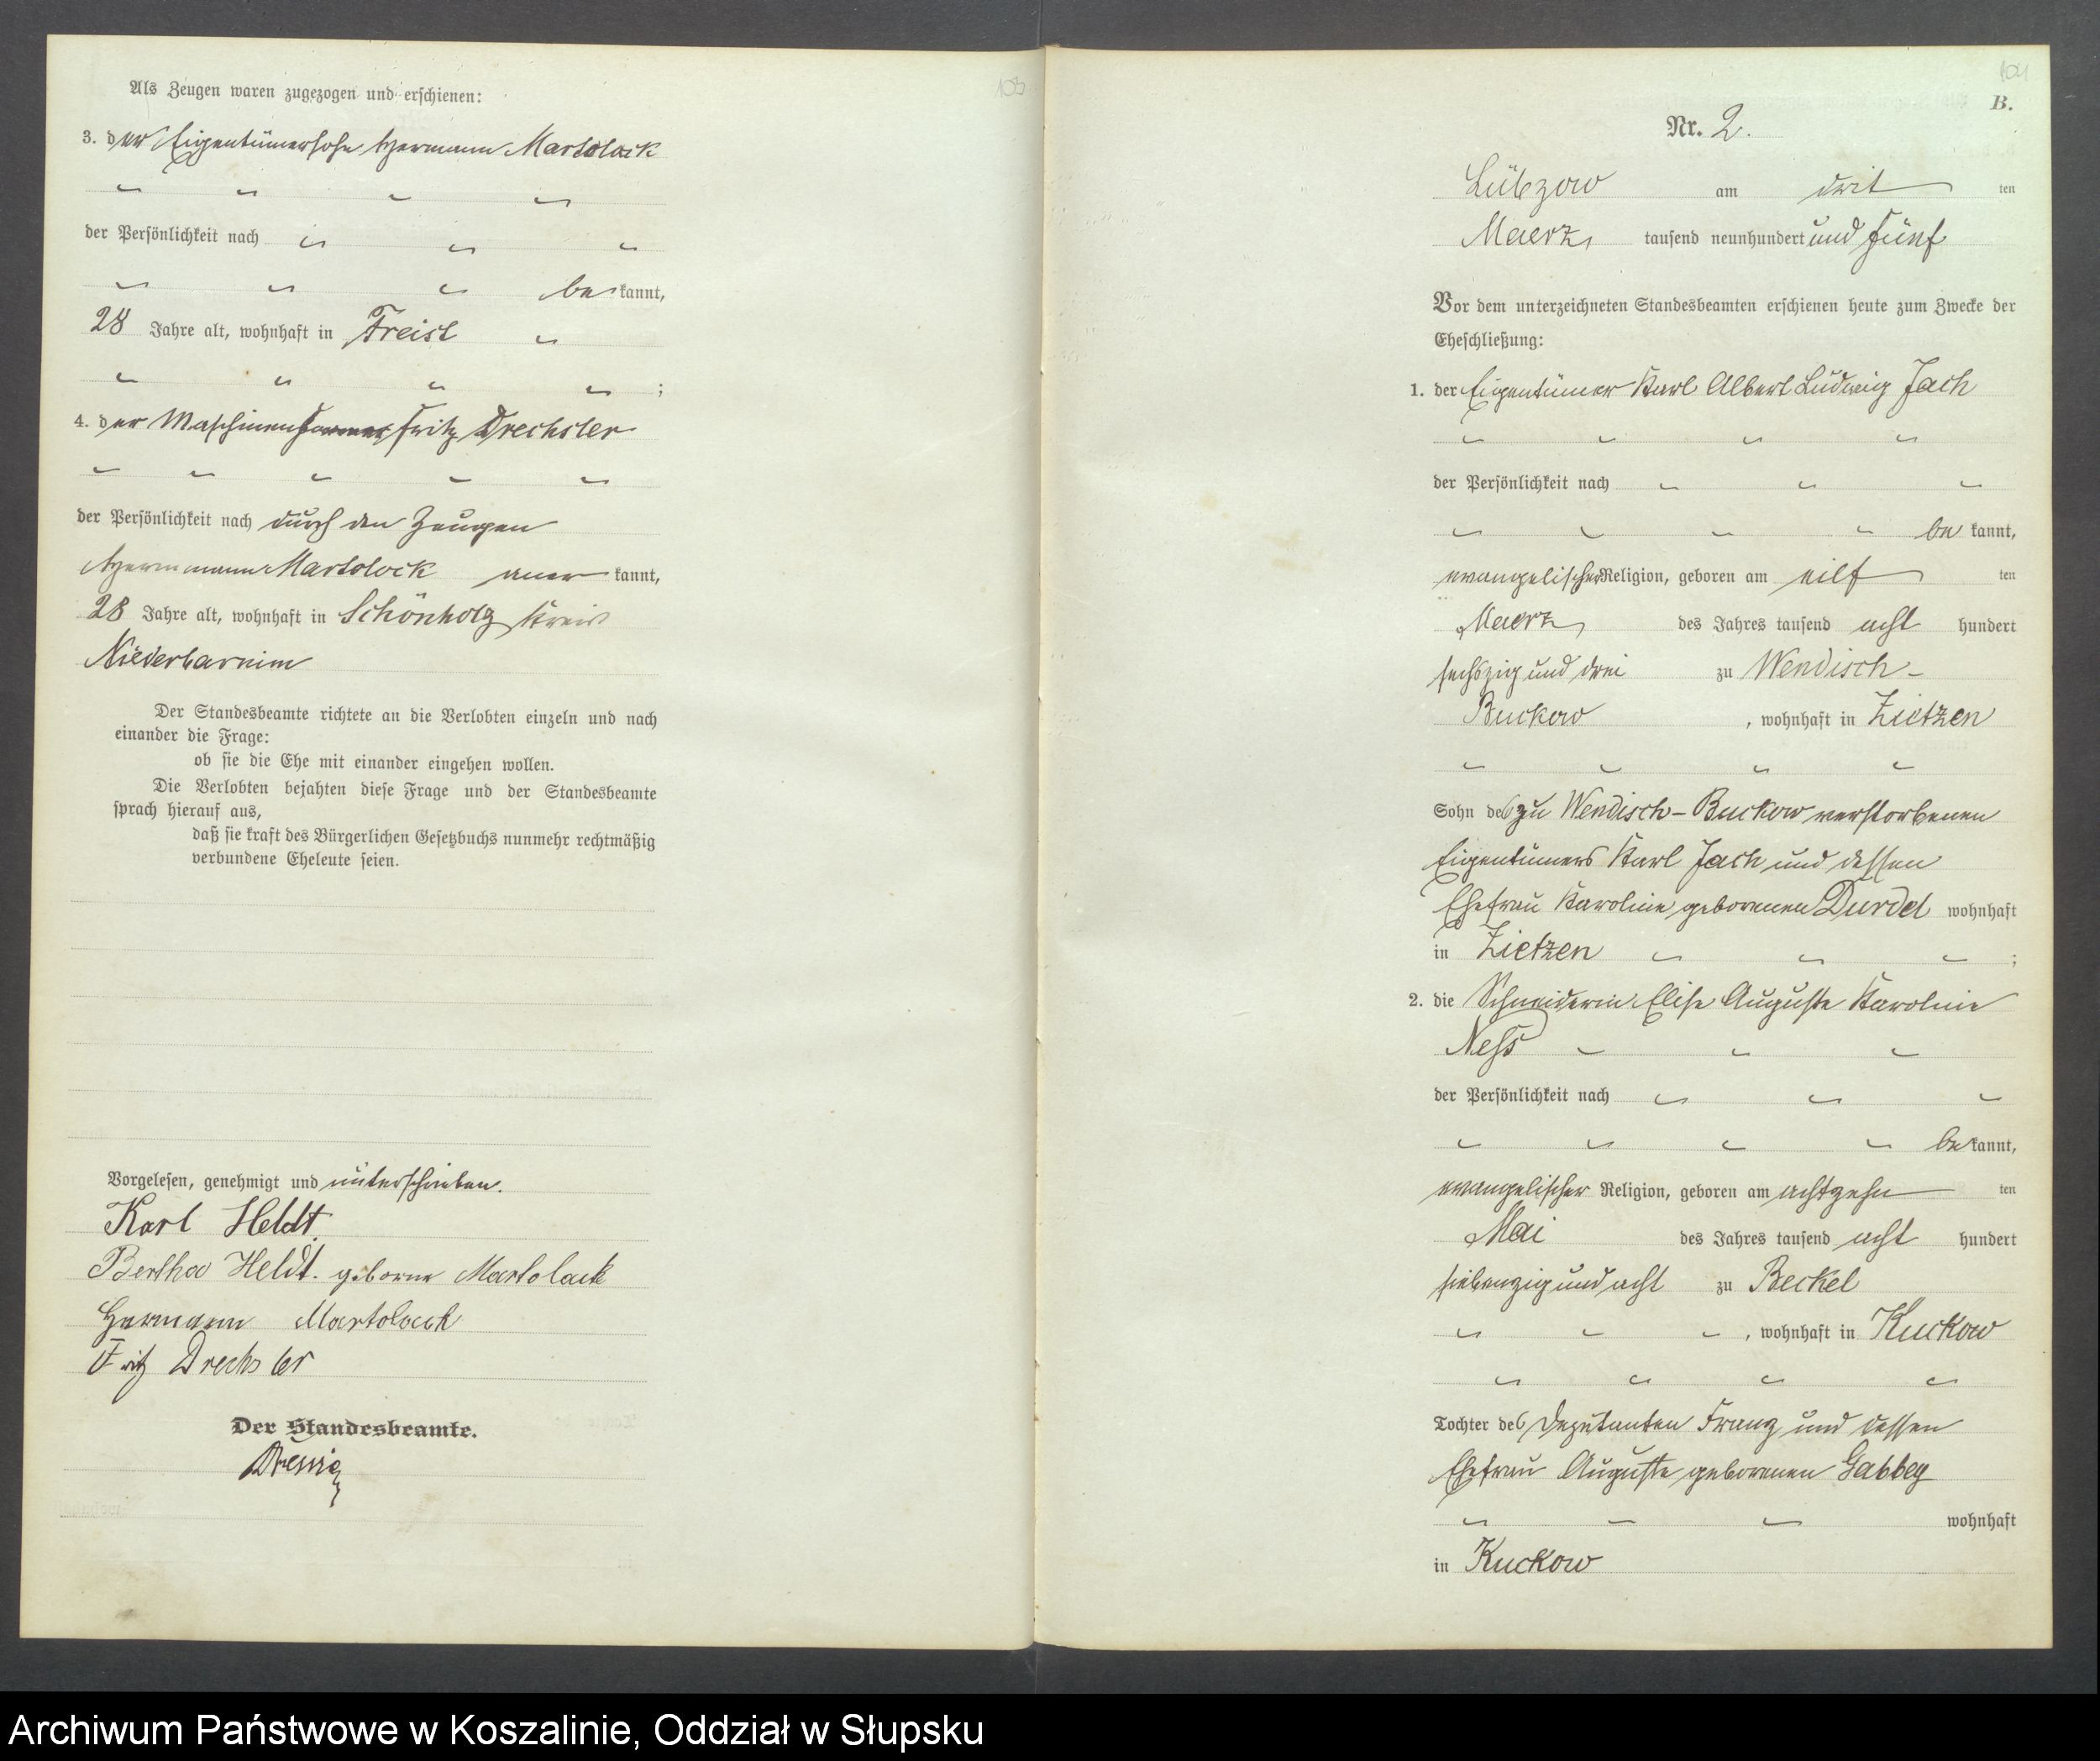 Als Zeugen waren zugezogen und erschienen:
3. der Eigentümersohn Hermann Martolock
der Persönlichkeit nach
bekannt,
28 Jahre alt, wohnhaft in Freist
;
4. der Maschinen Fritz Drechsler
der Persönlichkeit nach durch den Zeugen
Hermann Martolock aner kannt,
28 Jahre alt, wohnhaft in Schönholz Kreis
Niederbarnim
Der Standesbeamte richtete an die Verlobten einzeln und nach
einander die Frage:
ob sie die Ehe mit einander eingehen wollen.
Die Verlobten bejahten diese Frage und der Standesbeamte
sprach hierauf aus,
daß sie kraft des Bürgerlichen Gesetzbuchs nunmehr rechtmäßig
verbundene Eheleute seien.
Vorgelesen, genehmigt und unterschrieben.
Karl Heldt.
Bertha Heldt. geborne Martolack
Hermann Martolack
Fritz Drechsler
Der Standesbeamte.
103
104
B.
Nr. 2.
Lübzow am drit ten
Maerz tausend neunhundert und fünf
Vor dem unterzeichneten Standesbeamten erschienen heute zum Zwecke der
Eheschließung:
1. der Eigentümer Karl Albert Ludwig Jach
der Persönlichkeit nach
be kannt,
evangelischer Religion, geboren am eilf ten
Maerz des Jahres tausend acht hundert
sechszig und drei zu Wendisch-
Buckow, wohnhaft in Zietzen
Sohn des zu Wendisch-Buckow verstorbenen
Eigentümers Karl Jach und dessen
Ehefrau Karoline geborenen Durdel wohnhaft
in Zietzen ;
2. die Schneiderin Elise Auguste Karoline
Ness
der Persönlichkeit nach
be kannt,
evangelischer Religion, geboren am achtzehn ten
Mai des Jahres tausend acht hundert
siebenzig und acht zu Beckel
, wohnhaft in Kuckow
Tochter des Deputanten Franz und dessen
Ehefrau Auguste geborenen Gabbey
wohnhaft
in Kuckow
Archiwum Państwowe w Koszalinie, Oddział w Słupsku